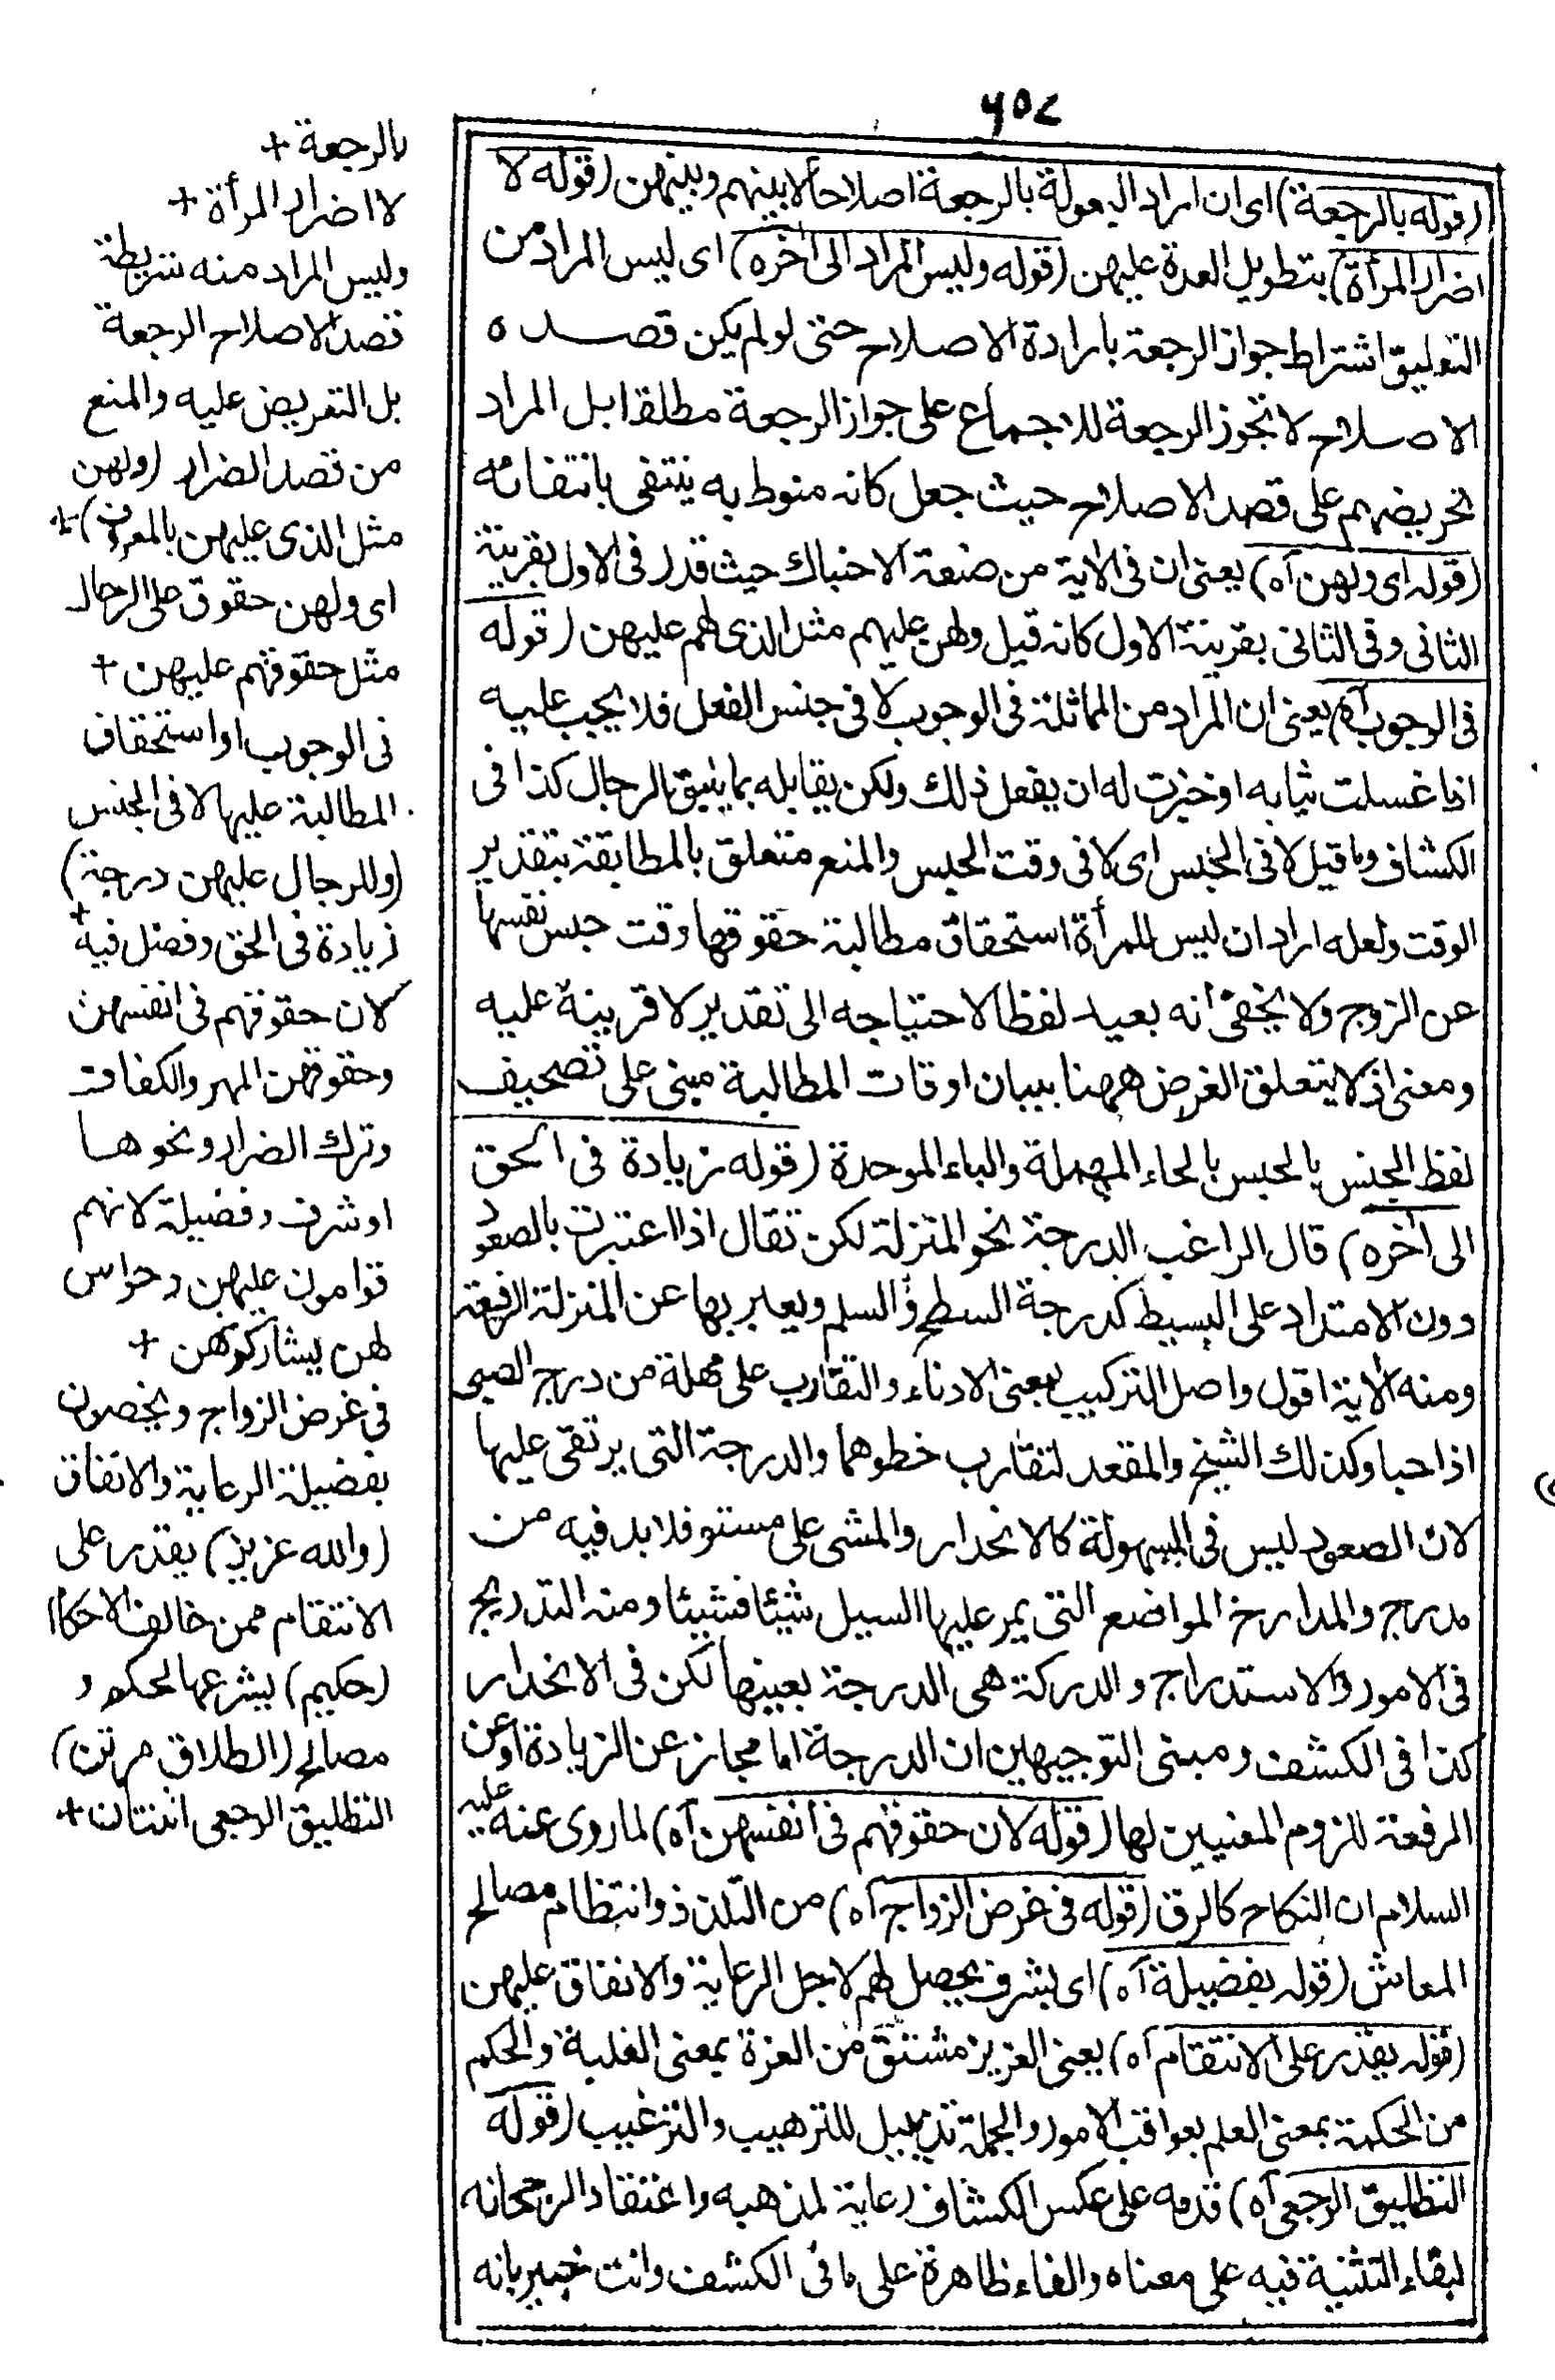 ٦٥٧
(قوله بالرجعة) اى ان اراد البعولة بالرجعة اصلاحا لا بينهم وبينهن (قوله لا
اضرار المرأة) بتطويل العدة عليهن (قوله وليس المراد الى آخره) اى ليس المراد من
التعليق اشتراط جواز الرجعة بارادة الاصلاح حتى لو لم يكن قصده
الاصلاح لا تجوز الرجعة للاجماع على جواز الرجعة مطلقا بل المراد
تحريضهم على قصد الاصلاح حيث جعل كانه منوط به ينتفى بانتفائه
(قوله اى ولهن آه) يعنى ان فى الآية من صنعة الاحتباك حيث قدر فى الاول بقرينة
الثانى وفى الثانى بقرينة الاول كانه قيل ولهن عليهم مثل الذى لهم عليهن (قوله
فى الوجوب آه) يعنى ان المراد من المماثلة فى الوجوب لا فى جنس الفعل فلا يجب عليه
اذا غسلت ثيابه او خبزت له ان يفعل ذلك ولكن يقابله بما يليق بالرجال كذا فى
الكشاف وما قيل لا فى الحبس اى لا فى وقت الحبس والمنع متعلق بالمطابقة بتقدير
الوقت ولعله اراد ان ليس للمرأة استحقاق مطالبة حقوقها وقت حبس نفسها
عن الزوج ولا يخفى انه بعيد لفظا لاحتياجه الى تقدير لا قرينة عليه
ومعنى اذ لا يتعلق الغرض ههنا ببيان اوقات المطالبة مبنى على تصحيف
لفظ الجنس بالحبس بالحاء المهملة والباء الموحدة (قوله زيادة فى الحق
الى آخره) قال الراغب الدرجة نحو المنزلة لكن تقال اذا اعتبرت بالصعود
دون الامتداد على البسيط كدرجة السطح والسلم ويعبر بها عن المنزلة الرفيعة
ومنه الآية اقول واصل التركيب بمعنى الادناء والتقارب على مهلة من درج الصبى
اذا حبا وكذلك الشيخ والمقعد لتقارب خطوهما والدرجة التى يرتقى عليها
لان الصعود ليس فى السهولة كالانحدار والمشى على مستو فلا بد فيه من
مدرج والمدارج المواضع التى يمر عليها السيل شيئا فشيئا ومنه التدريج
فى الامور والاستدراج والدركة هى الدرجة بعينها لكن فى الانحدار
كذا فى الكشف ومبنى التوجيهين ان الدرجة اما مجاز عن الزيادة او عن
الرفعة للزوم المعنيين لها (قوله لان حقوقهم فى انفسهن آه) لما روى عنه عليه
السلام ان النكاح كالرق (قوله فى غرض الزواج آه) من التلذذ وانتظام مصالح
المعاش (قوله بفضيلة آه) اى بشرف يحصل لهم لاجل الرعاية والانفاق عليهن
(قوله يقدر على الانتقام آه) يعنى العزيز مشتق من العزة بمعنى الغلبة والحكم
من الحكمة بمعنى العلم بعواقب الامور والجملة تذييل للترهيب والترغيب (قوله
التطليق الرجعى آه) قدمه على عكس الكشاف رعاية لمذهبه واعتقاد الرجحانه
لبقاء التثنية فيه على معناه والفاء ظاهرة على ما فى الكشف وانت خبير بانه
بالرجعة +
لا اضرار المرأة +
وليس المراد منه شريطة
قصد الاصلاح الرجعة
بل التحريض عليه والمنع
من قصد الضرار (ولهن
مثل الذى عليهن بالمعروف) +
اى ولهن حقوق على الرجال
مثل حقوقهم عليهن +
فى الوجوب او استحقاق
المطالبة عليها لا فى الجنس
(وللرجال عليهن درجة)
زيادة فى الحق وفضل فيه +
لان حقوقهم فى انفسهن
وحقوقهن المهر والكفاف
وترك الضرار ونحوها
او شرف وفضيلة لانهم
قوامون عليهن وحراس
لهن يشاركوهن +
فى غرض الزواج ويخصون
بفضيلة الرعاية والانفاق
(والله عزيز) يقدر على
الانتقام ممن خالف الاحكام
(حكيم) يشرعها لحكم و
مصالح (الطلاق مرتن)
التطليق الرجعى اثنتان +